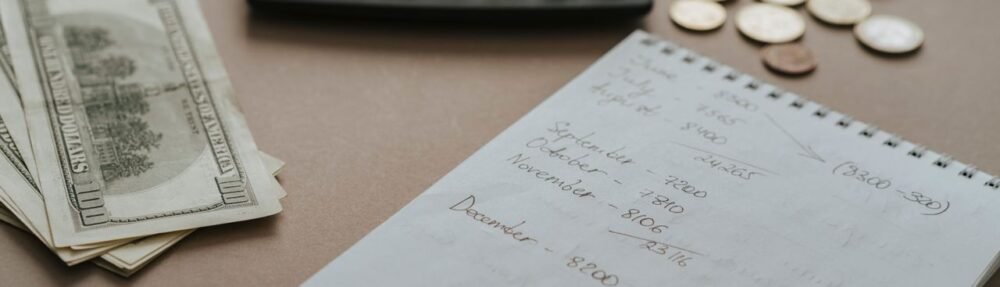 NDRED DOLLARS
100
STATES OF AMERICA
WE TRUST
100
June - 8300
July - 7565
August - 8400
24265
(8300-300)
September - 7200
October - 7810
November - 8106
23116
December - 8200